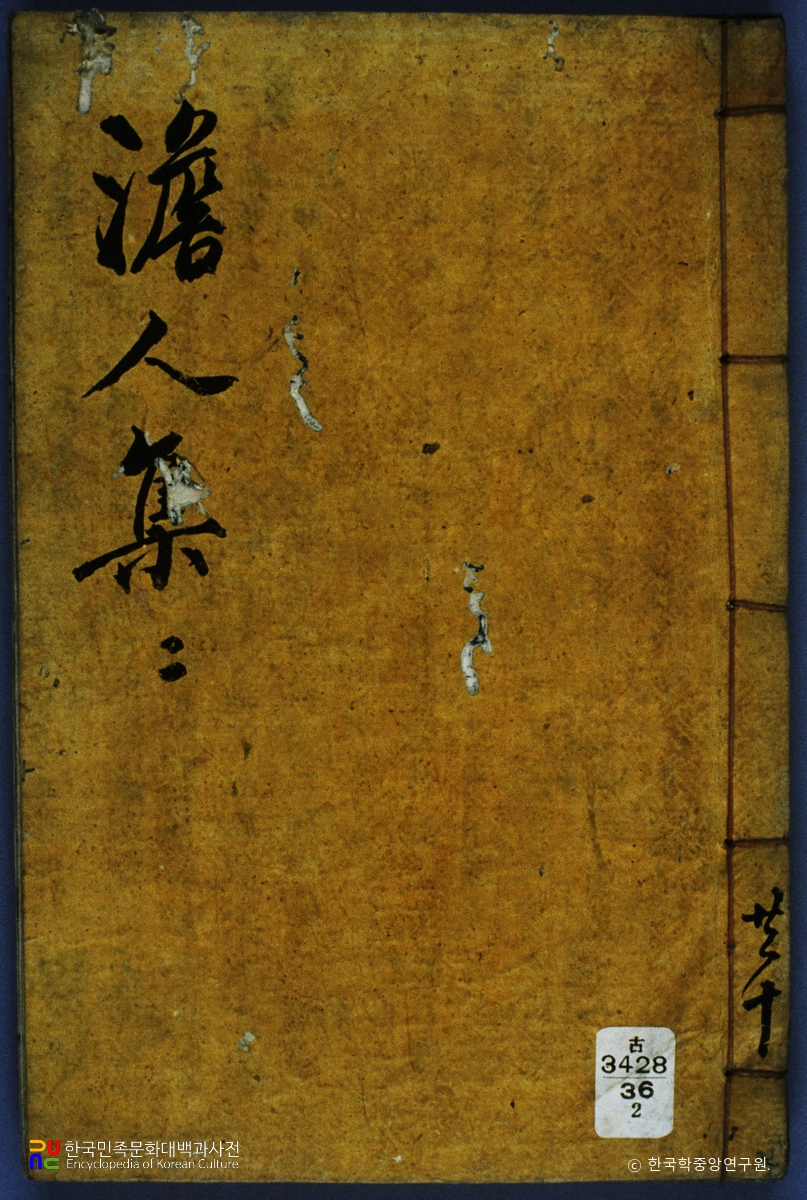 澹人集 二
共十
古
3428
36
2
한국민족문화대백과사전
Encyclopedia of Korean Culture
© 한국학중앙연구원